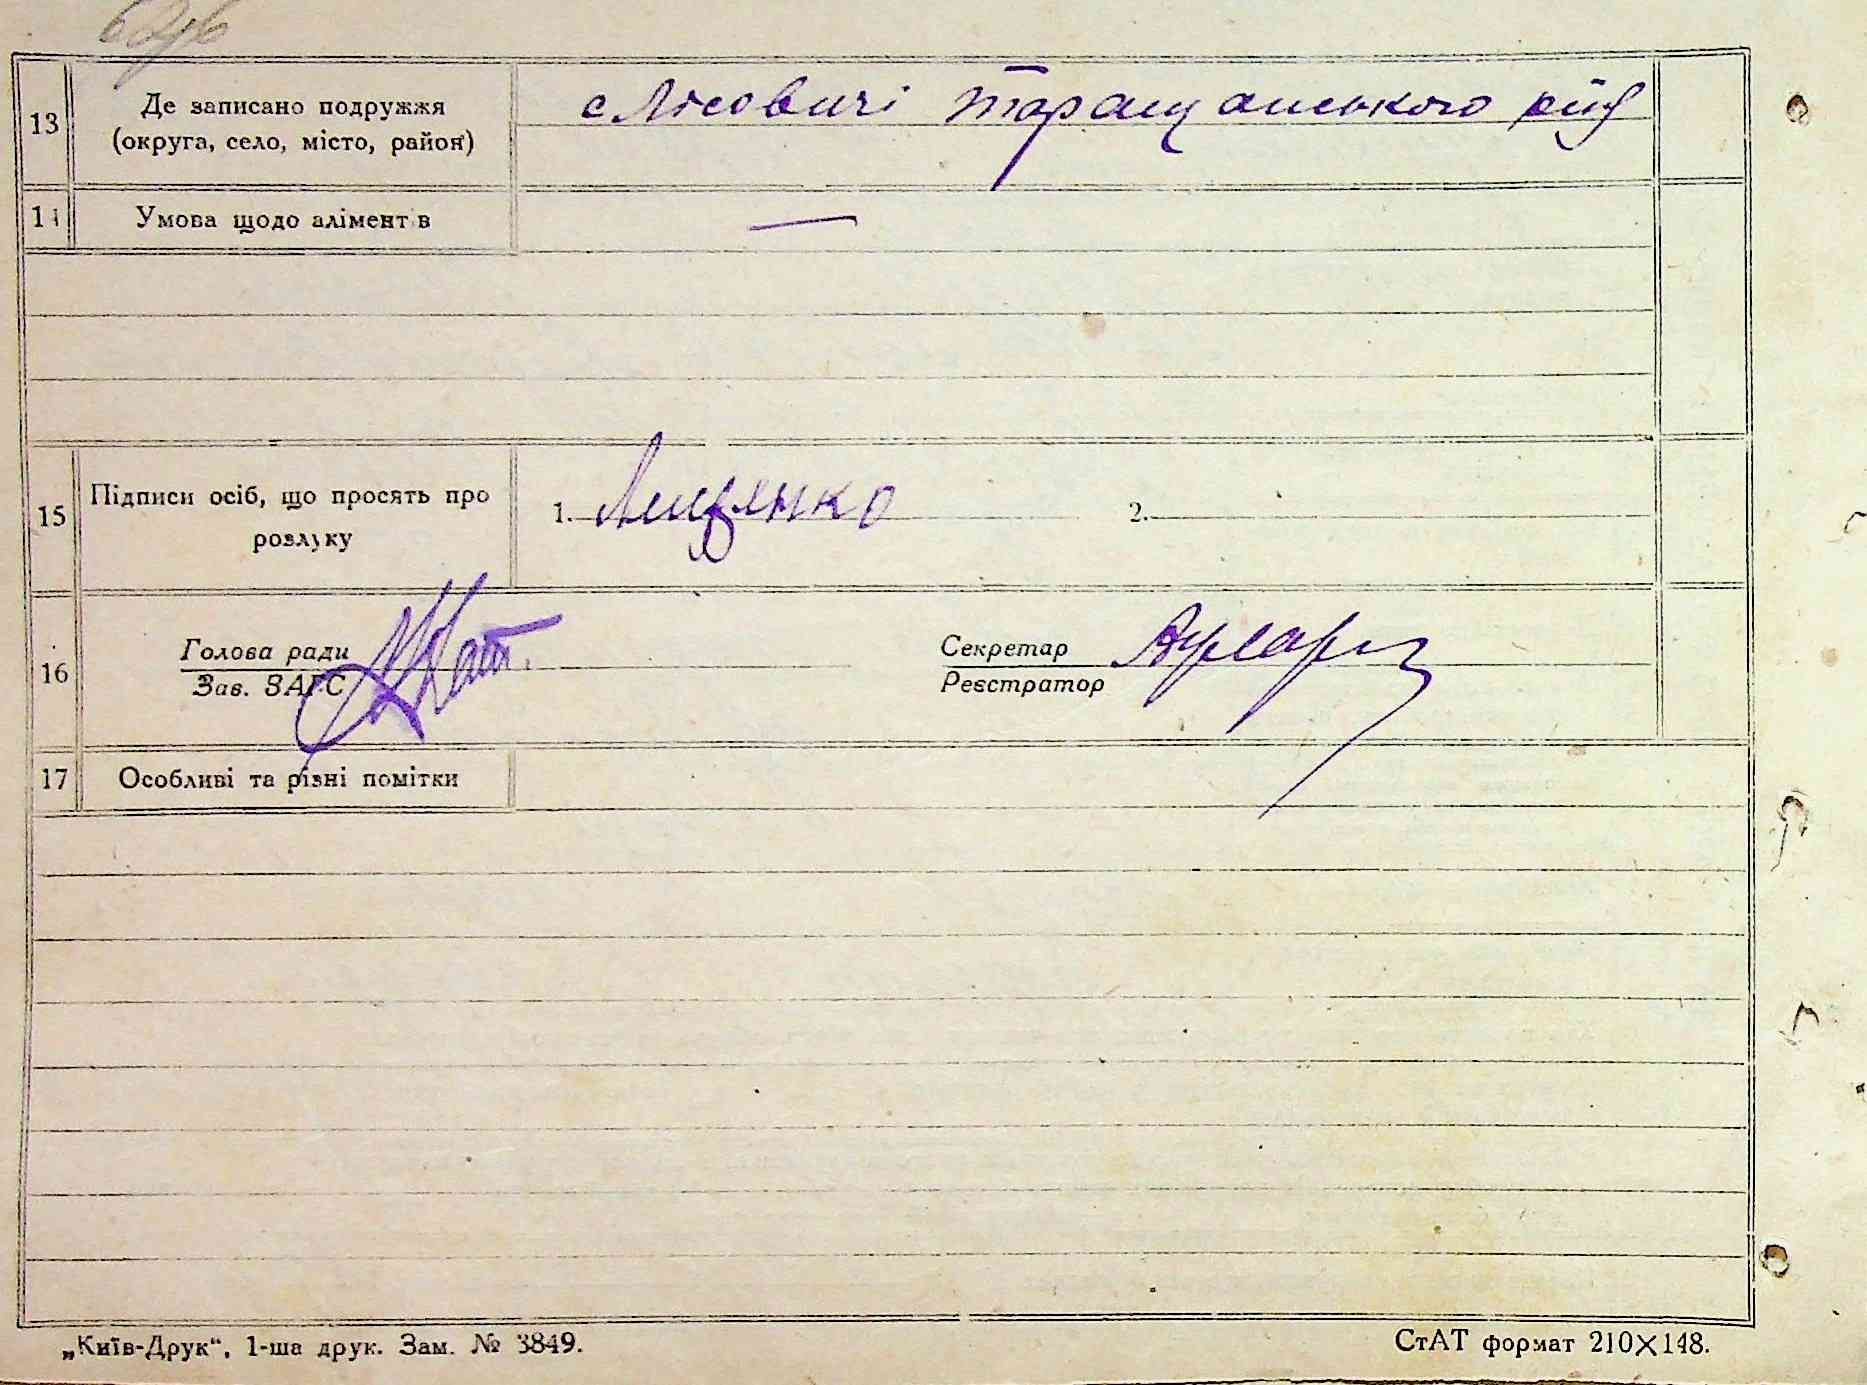 13 Де записано подружжя
(округа, село, місто, район)
с Лісовичі Таращанського р-ну
14 Умова щодо аліментів
15 Підписи осіб, що просять про
розлуку
1. Лищенко 2.
16 Голова ради
Зав. ЗАГС
Секретар
Реєстратор
17 Особливі та різні помітки
„Київ-Друк“, 1-ша друк. Зам. № 3849.
СтАТ формат 210×148.